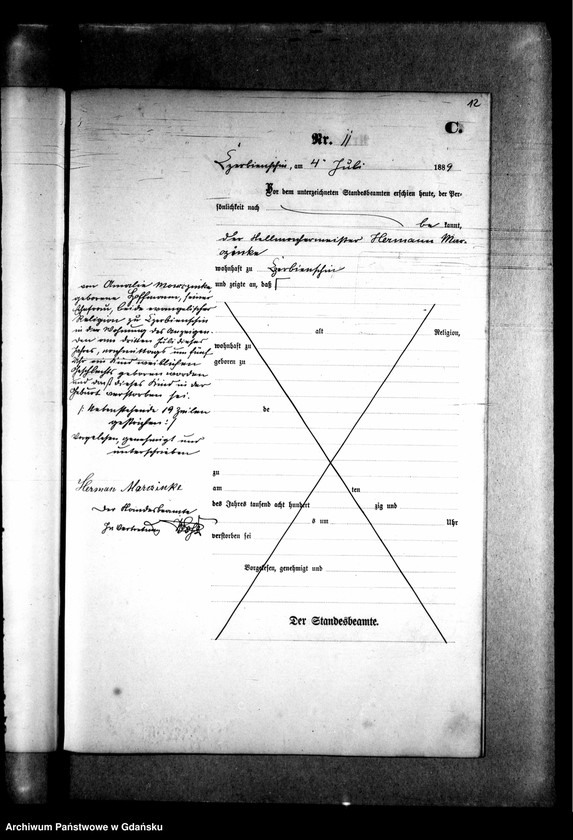 12
C.
Nr. 11
Czerbienschin, am 4. Juli 1889
Vor dem unterzeichneten Standesbeamten erschien heute, der Per-
sönlichkeit nach
be kannt,
der Hermann Mar-
czinke
wohnhaft zu Czerbienschin
und zeigte an, daß
von Amalie Marczinke
geborene Hoffmann, seiner
Ehefrau, beide evangelischer
Religion zu Czerbienschin
in der Wohnung des Anzeigen-
den am dritten Juli dieses
Jahres, nachmittags um fünf
Uhr ein Kind weiblichen
Geschlechts geboren worden
und daß dieses Kind in der
Geburt verstorben sei.
/: Nebenstehende 19 Zeilen
gestrichen :/
Vorgelesen, genehmigt und
unterschrieben
Herman Marczinke
Der Standesbeamte
In Vertretung
alt Religion,
wohnhaft zu
geboren zu
de
zu
am ten
des Jahres tausend acht hundert zig und
s um Uhr
verstorben sei
Vorgelesen, genehmigt und
Der Standesbeamte.
Archiwum Państwowe w Gdańsku